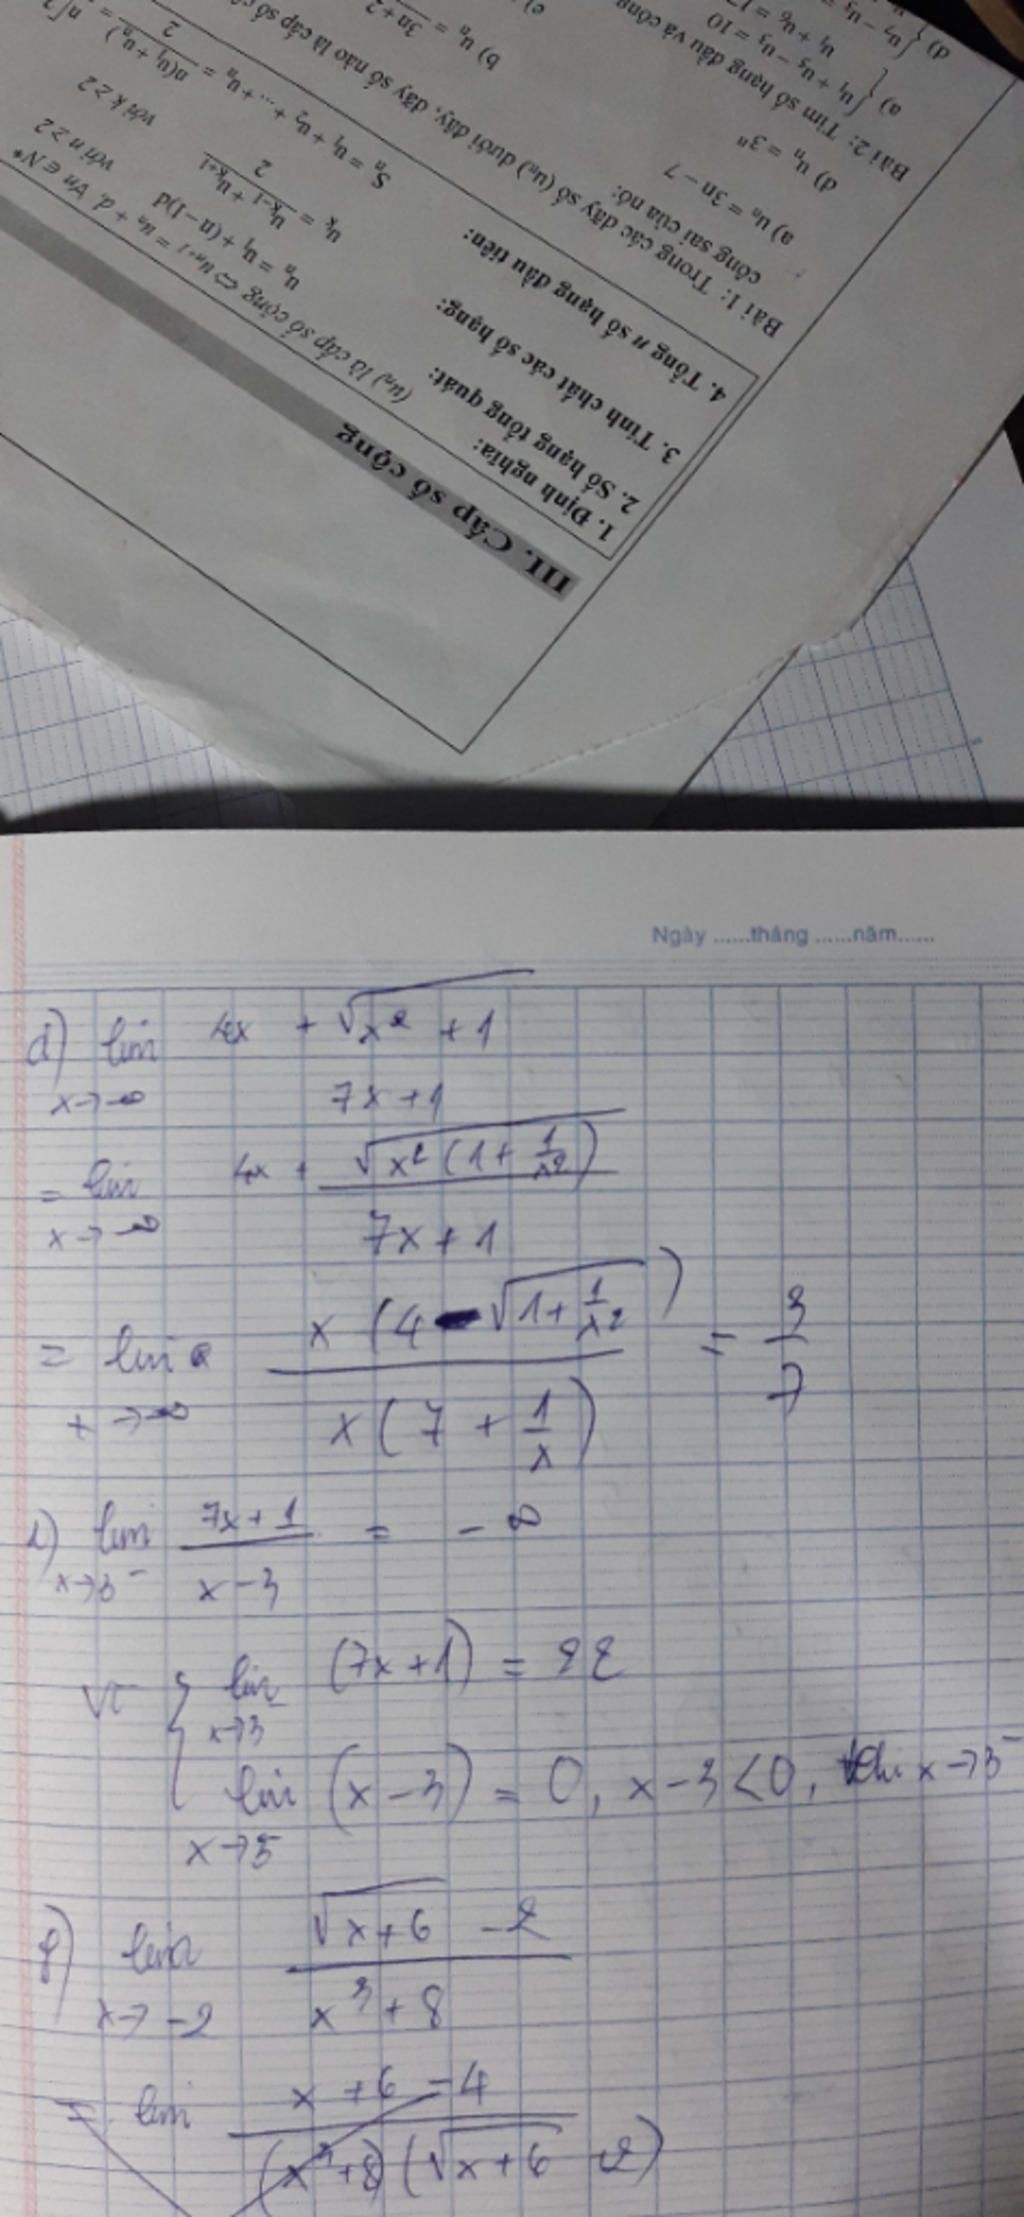 III. Cấp số cộng
1. Định nghĩa: (uₙ) là cấp số cộng ⇔ uₙ₊₁ = uₙ + d, ∀n ∈ N*
2. Số hạng tổng quát: uₙ = u₁ + (n – 1)d với n ≥ 2
3. Tính chất các số hạng: uₖ = (uₖ₋₁ + uₖ₊₁)/2 với k ≥ 2
4. Tổng n số hạng đầu tiên: Sₙ = u₁ + u₂ + ... + uₙ = n(u₁ + uₙ)/2 =
Bài 1: Trong các dãy số (uₙ) dưới đây, dãy số nào là cấp số
công sai của nó:
a) uₙ = 3n – 7 b) uₙ =
d) uₙ = 3ⁿ e)
Bài 2: Tìm số hạng đầu và công
a) { u₁ + u₅ – u₃ = 10
u₁ + u₆ =
d) { u₇ – u₃ =
Ngày ......tháng ......năm......
d) lim 4x + √x² + 1
x → -∞ 7x + 1
= lim 4x + √x² (1 + 1/x²)
x → -∞ 7x + 1
= lim x (4 - √1 + 1/x²) = 3/7
x → -∞ x (7 + 1/x)
lim 7x + 1 = - ∞
x → 3⁻ x - 3
Vì { lim (7x + 1) = 22
x → 3
lim (x - 3) = 0, x - 3 < 0, khi x → 3⁻
x → 3
f) lim √x + 6 - 2
x → -2 x³ + 8
= lim x + 6 - 4
(x³ + 8) (√x + 6 2)